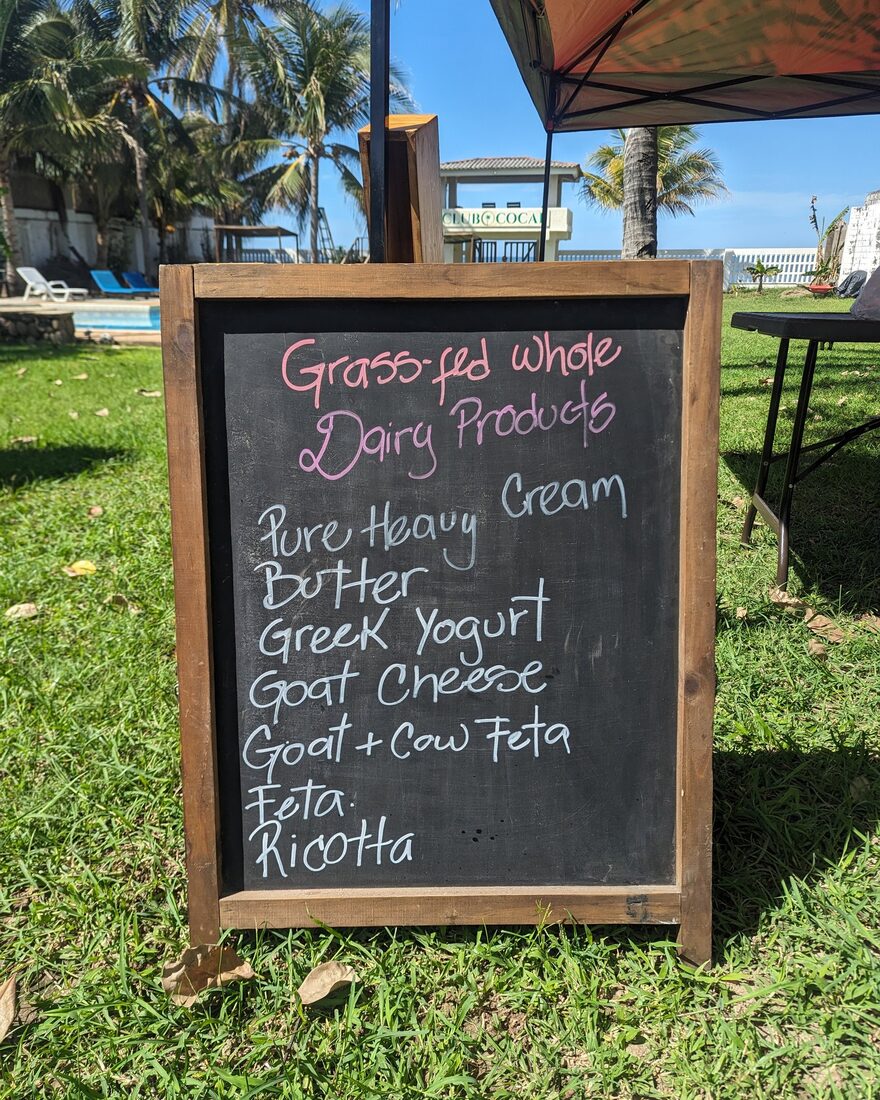 CLUB COCAL
Grass-fed Whole
Dairy Products
Pure Heavy Cream
Butter
Greek Yogurt
Goat Cheese
Goat + Cow Feta
Feta.
Ricotta